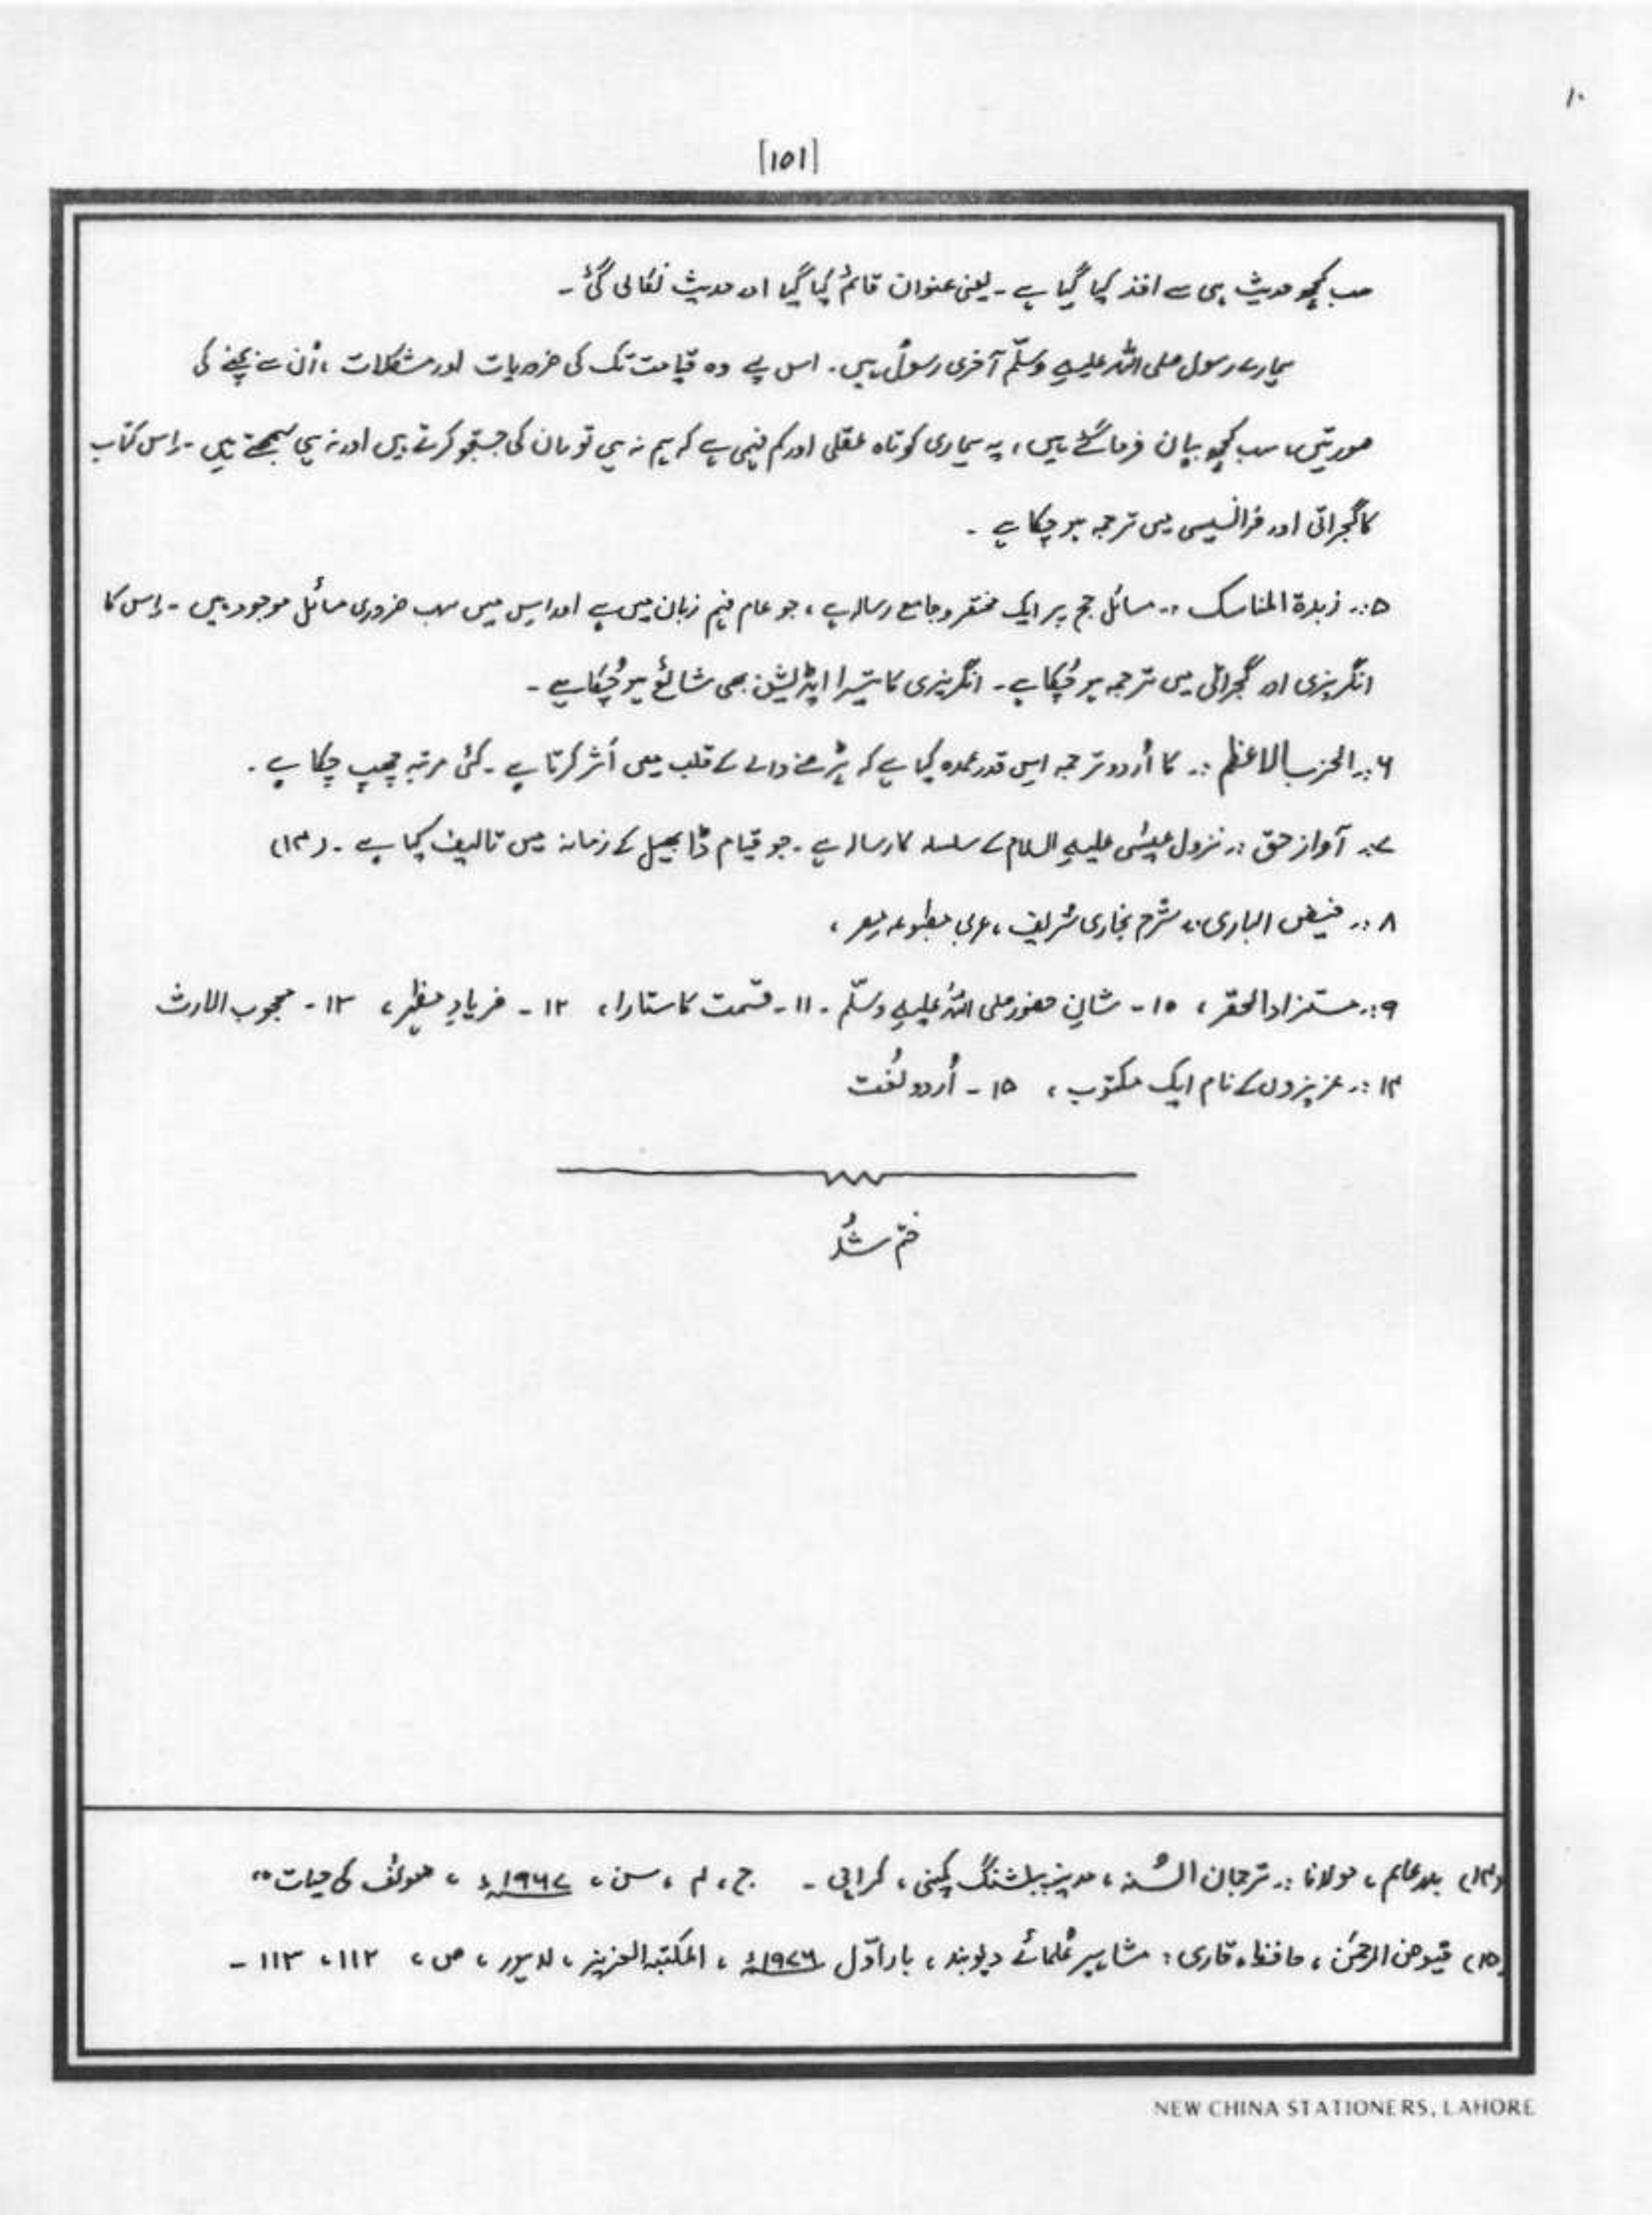 ۱۰
[۱۵۱]
سب کچھ حدیث ہی سے اخذ کیا گیا ہے۔ یعنی عنوان قائم کیا گیا اور حدیث نکالی گئی۔
ہمارے رسول صلی اللہ علیہ وسلّم آخری رسولؐ ہیں۔ اس لیے وہ قیامت تک کی ضروریات اور مشکلات، اُن سے بچنے کی
صورتیں، سب کچھ بیان فرما گئے ہیں، یہ ہماری کوتاہ عقلی اور کم فہمی ہے کہ ہم نہ ہی تو ان کی جستجو کرتے ہیں اور نہ ہی سمجھتے ہیں۔ اِس کتاب
کا گجراتی اور فرانسیسی میں ترجمہ ہو چکا ہے۔
۵:۔ زبدۃ المناسک :۔ مسائل حج پر ایک مختصر و جامع رسالہ ہے، جو عام فہم زبان میں ہے اور اِس میں سب ضروری مسائل موجود ہیں۔ اِس کا
انگریزی اور گجراتی میں ترجمہ ہو چُکا ہے۔ انگریزی کا تیسرا ایڈیشن بھی شائع ہو چُکا ہے۔
۶:۔ الحزب الاعظم :۔ کا اُردو ترجمہ اِس قدر عمدہ کیا ہے کہ پڑھنے والے کے قلب میں اَثر کرتا ہے۔ کئی مرتبہ چھپ چکا ہے۔
۷:۔ آواز حق :۔ نزول عیسٰی علیہ السلام کے سلسلہ کا رسالہ ہے۔ جو قیام ڈابھیل کے زمانہ میں تالیف کیا ہے۔ (۱۴)
۸:۔ فیض الباری :۔ شرح بخاری شریف، عربی مطبوعہ مصر،
۹:۔ مستزاد الحقر، ۱۰۔ شانِ حضور صلی اللہ علیہ وسلّم۔ ۱۱۔ قسمت کا ستارا، ۱۲۔ فریادِ مظہر، ۱۳۔ محجوب الارث
۱۴:۔ عزیزوں کے نام ایک مکتوب، ۱۵۔ اُردو لُغت
ختم شُد
(۱۴) بدر عالم، مولانا :۔ ترجمان السُنہ، مدینہ پبلشنگ کمپنی، کراچی۔ ج، ۴، سن، ۱۹۶۷ء، مولف کی حیات
(۱۵) فیوض الرحمٰن، حافظ، قاری: مشاہیر عُلمائے دیوبند، بار اوّل ۱۹۷۶ء، المکتبہ العزیز، لاہور، ص، ۱۱۲، ۱۱۳۔
NEW CHINA STATIONERS, LAHORE